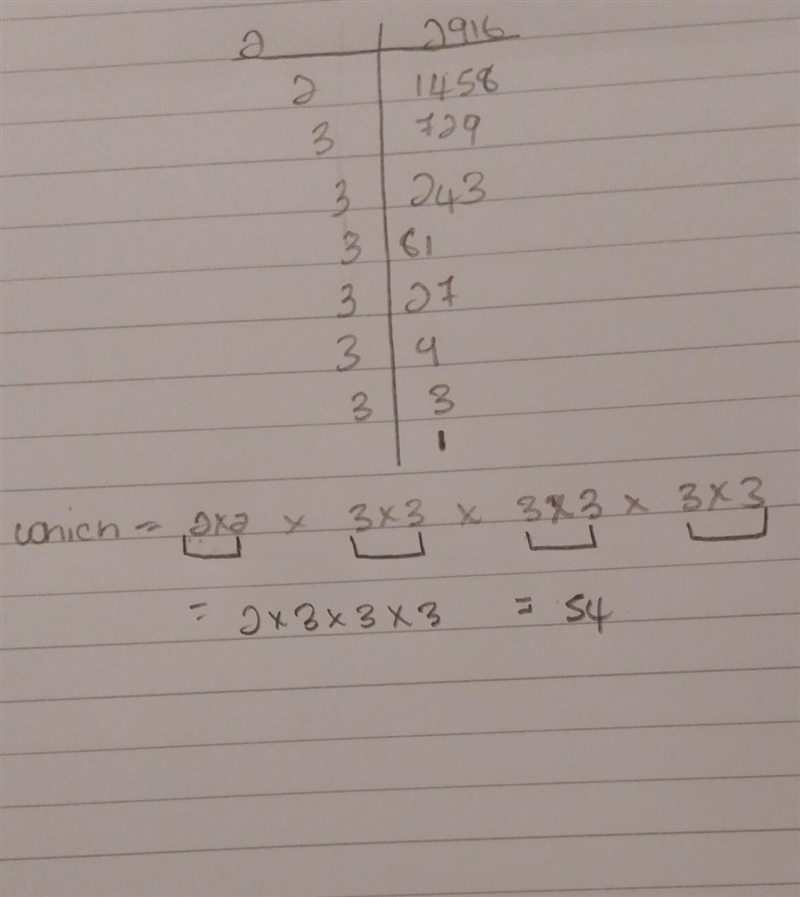 2 2916
2 1458
3 729
3 243
3 81
3 27
3 9
3 3
1
which = 2x2 x 3x3 x 3x3 x 3x3
= 2x3x3x3 = 54